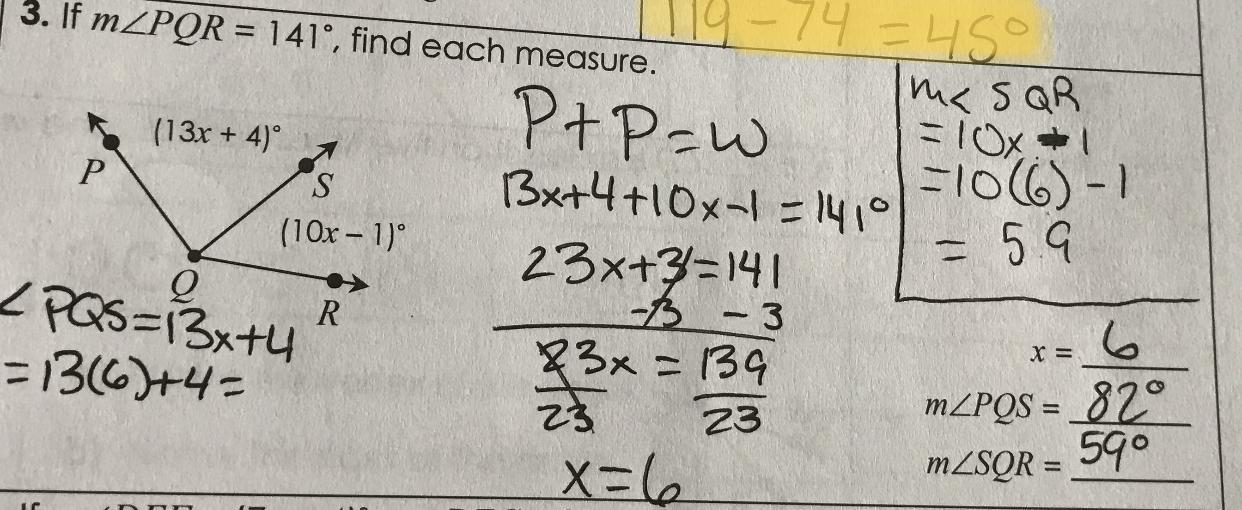 119 - 74 = 45°
3. If m∠PQR = 141°, find each measure.
(13x + 4)°
P
S
(10x – 1)°
Q
R
∠PQS = 13x+4
= 13(6)+4 =
P + P = W
13x+4+10x-1 = 141°
23x+3=141
-3 -3
23x = 139
23 23
x=6
m< SQR
= 10x - 1
= 10(6) - 1
= 59
x = 6
m∠PQS = 82°
m∠SQR = 59°